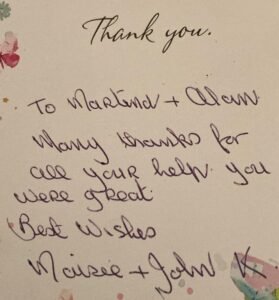 Thank you.
To Martina + Alan
Many thanks for
all your help. you
were great.
Best Wishes
Mairee + John X